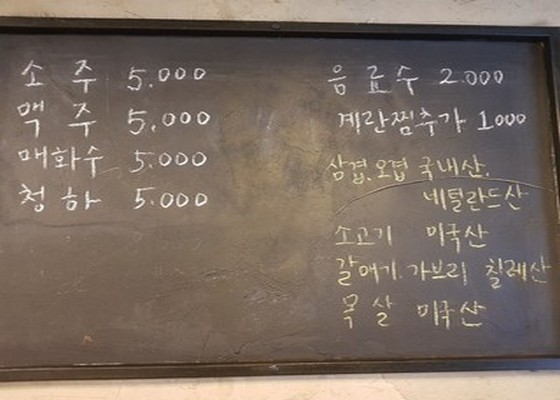 소 주 5.000
맥 주 5.000
매화수 5.000
청 하 5.000
음 료 수 2.000
계란찜추가 1000
삼겹.오겹 국내산.
네털란드산
소고기 미국산
갈매기.가브리 칠레산
목 살 미국산